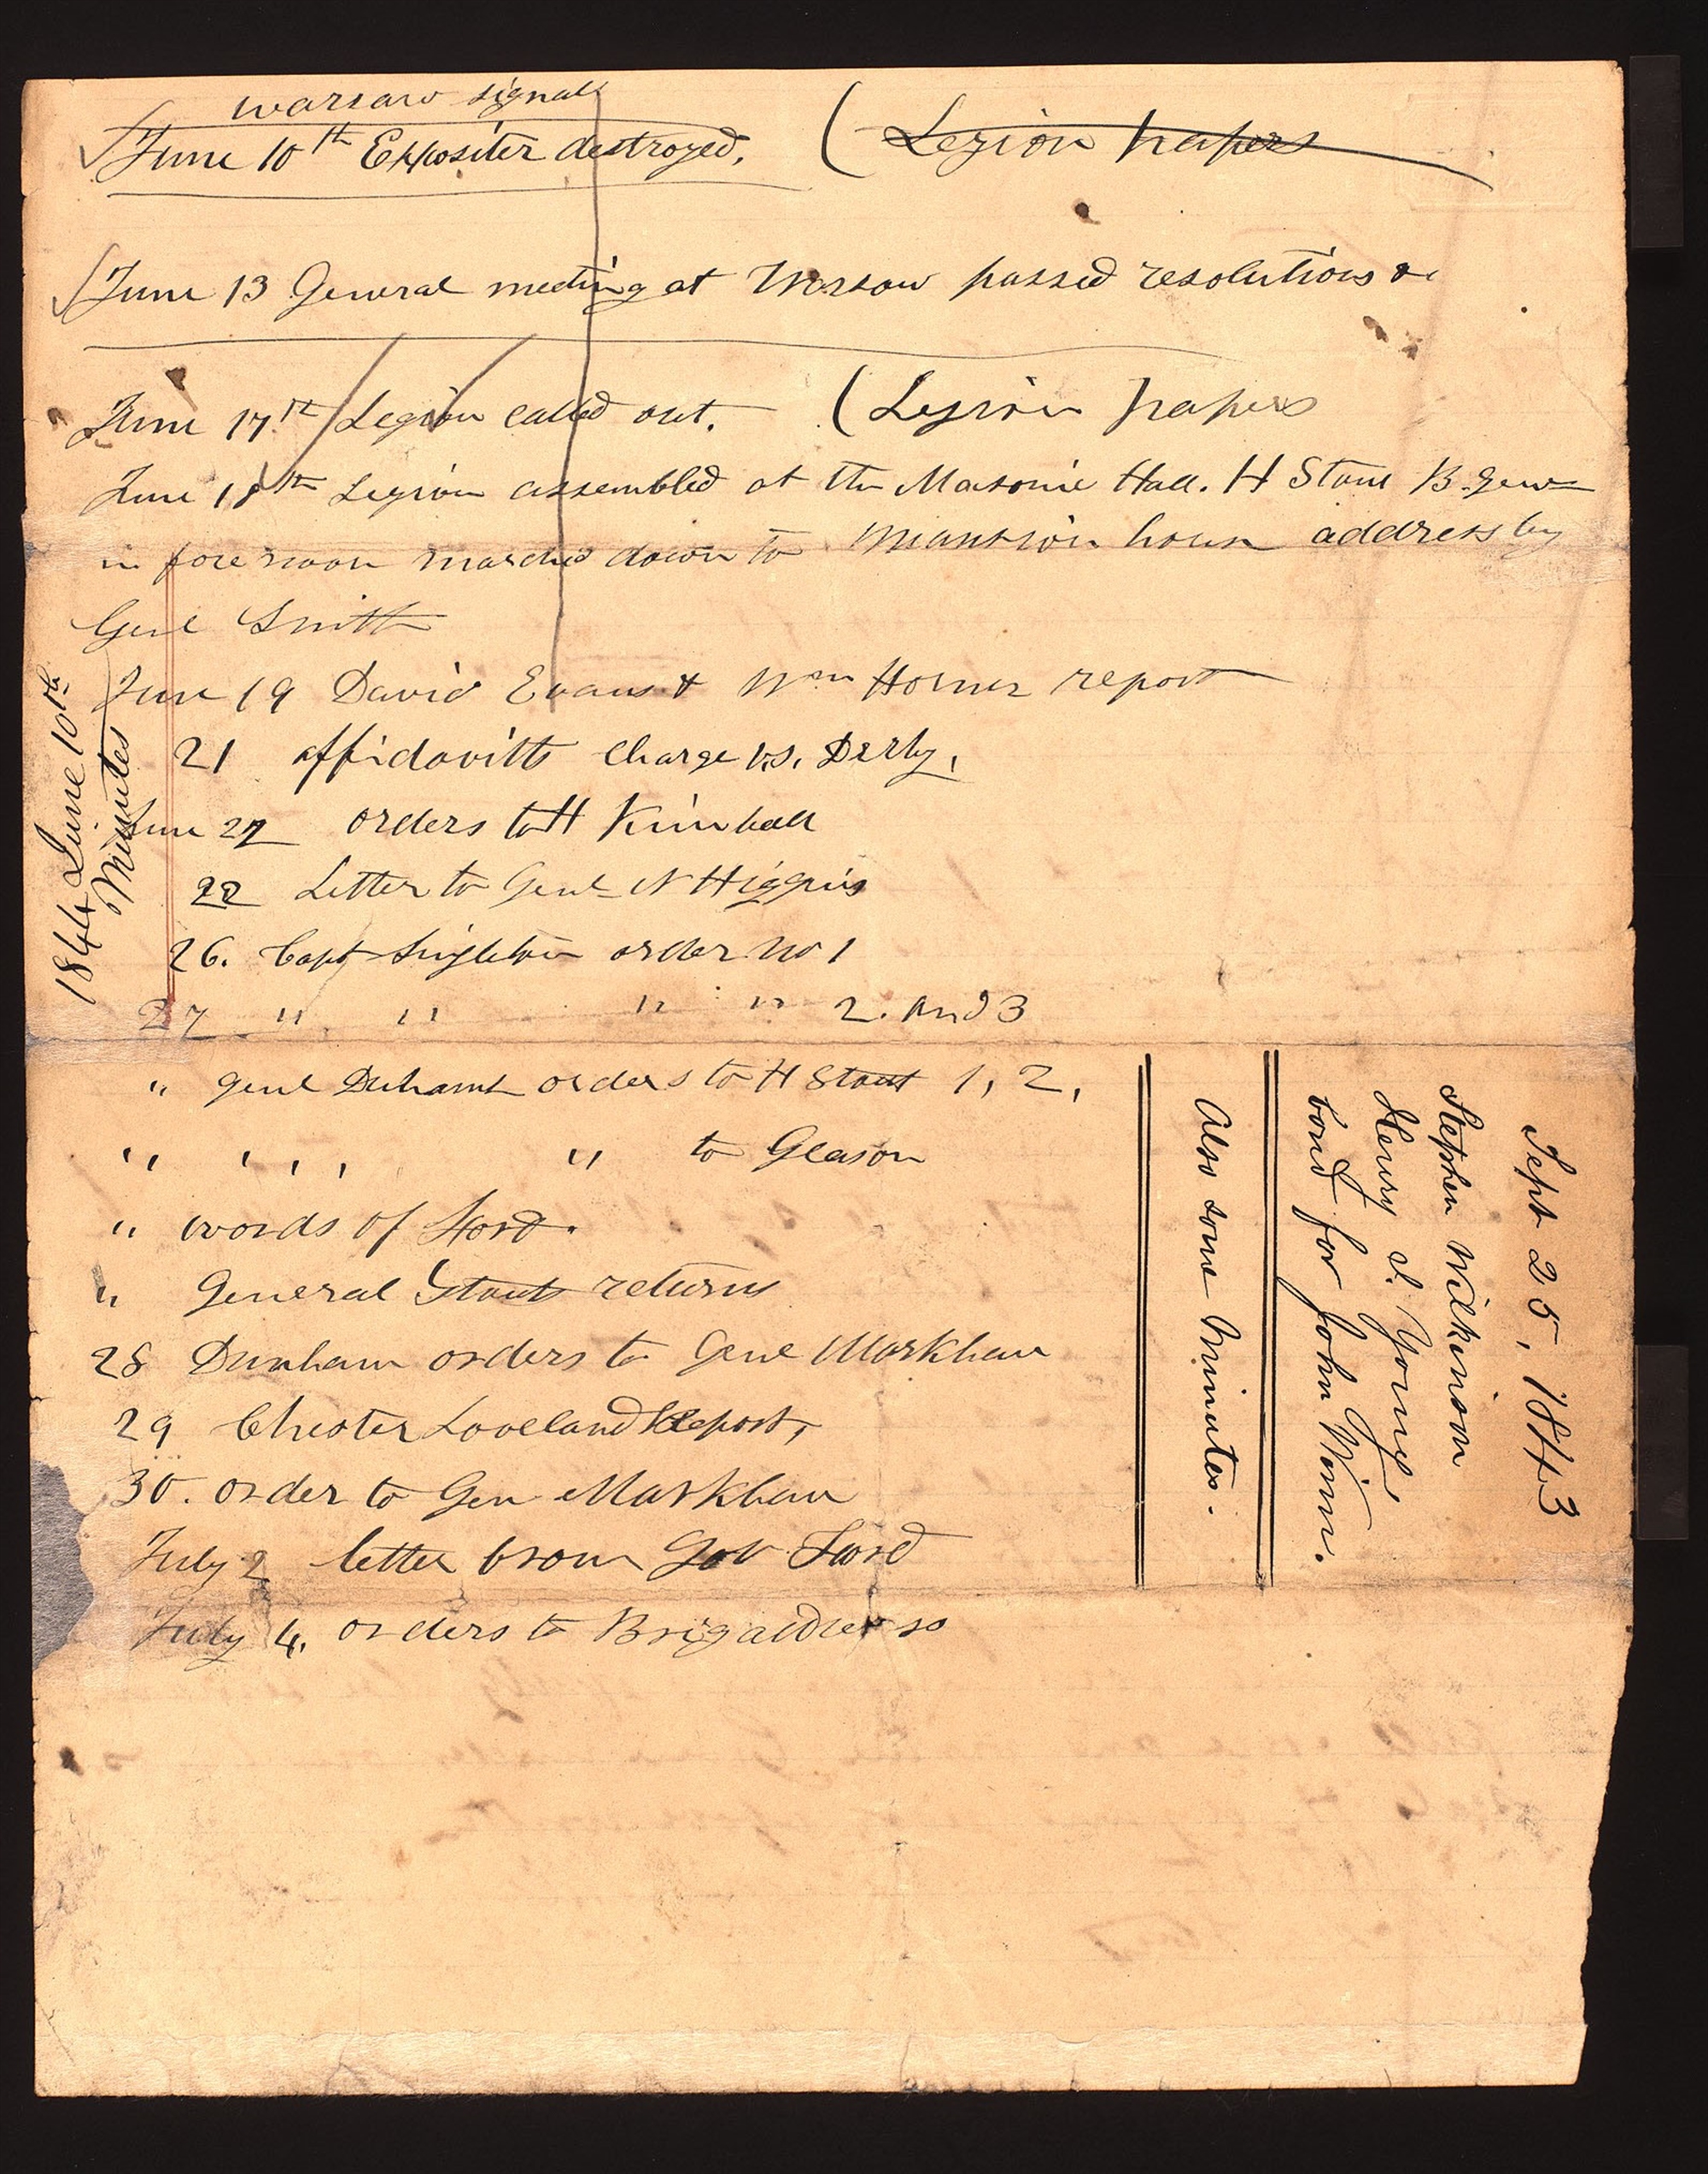 warsaw signal
June 10th Expositer destroyed. (Legion papers
June 13 General meeting at Warsaw passed resolutions &c
June 17th Legion called out. (Legion papers
June 18th Legion assembled at the Masonic Hall. H Stout B. Gen
in fore noon marched down to Mansion house address by
Genl Smith
June 19 David Evans & Wm Horner report
21 affidavitts charge vs. Derby.
June 22 orders to H Kimball
22 Letter to Genl N Higgins
26. Capt Singleton order No 1
27 " " " " 2. and 3
" Genl Dunham orders to H Stout 1, 2,
" " " to Gleason
" words of Ford.
" General Stouts returns
28 Dunham orders to Genl Markham
29 Chester Loveland Report,
30. order to Gen Markham
July 2 letter from Gov Ford
July 4. orders to Brigadiers
1844 June 10th
Minutes
Sept 25, 1843
Stephen Wilkinson
Henry I. Young's
bond for John Winn.
Also some minutes.